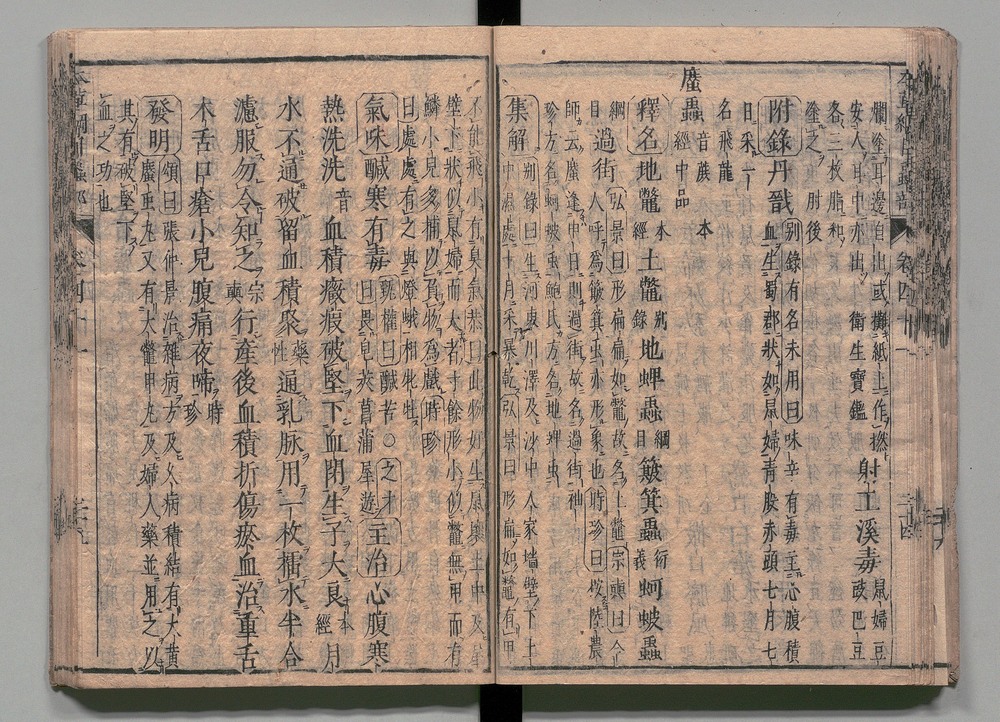 爛塗耳邊自出或攤紙上作撚
安入耳中亦出衛生寶鑑
射工溪毒
鼠婦豆豉巴豆
各三枚脂和
塗之肘後
附錄丹戩
别錄有名未用曰味辛有毒主心腹積
血生蜀郡狀如鼠婦青股赤頭七月七
日采一
名飛龍
䗪蟲音蔗本
經中品
釋名地鼈本經土鼈别錄地蜱蟲綱目簸箕蟲衍義蚵蚾蟲
綱目過街
弘景曰形扁扁如鼈故名土鼈宗奭曰今
人呼爲簸箕虫亦形象也時珍曰按陸農
師云䗪逢申日則過街故名過街袖
珍方名蚵蚾虫鮑氏方名地蜱虫
集解
别錄曰生河東川澤及沙中人家墻壁下土
中濕處十月采暴乾弘景曰形扁如鼈有甲
不能飛小有臭氣恭曰此物好生鼠壤土中及屋
壁下狀似鼠婦而大者寸餘形小似鼈無甲而有
鱗小兒多捕以負物爲戲時珍
曰處處有之與燈蛾相牝牡
氣味鹹寒有毒
甄權曰鹹苦○之才
曰畏皂莢菖蒲屋遊
主治心腹寒
熱洗洗音血積癥瘕破堅下血閉生子大良本經月
水不通破留血積聚藥性通乳脉用一枚擂水半合
濾服勿令知之宗奭行產後血積折傷瘀血治重舌
木舌口瘡小兒腹痛夜啼時珍
發明
頌曰張仲景治雜病方及久病積結有大黃
䗪虫丸又有大鼈甲丸及婦人藥並用之以
其有破堅下
血之功也